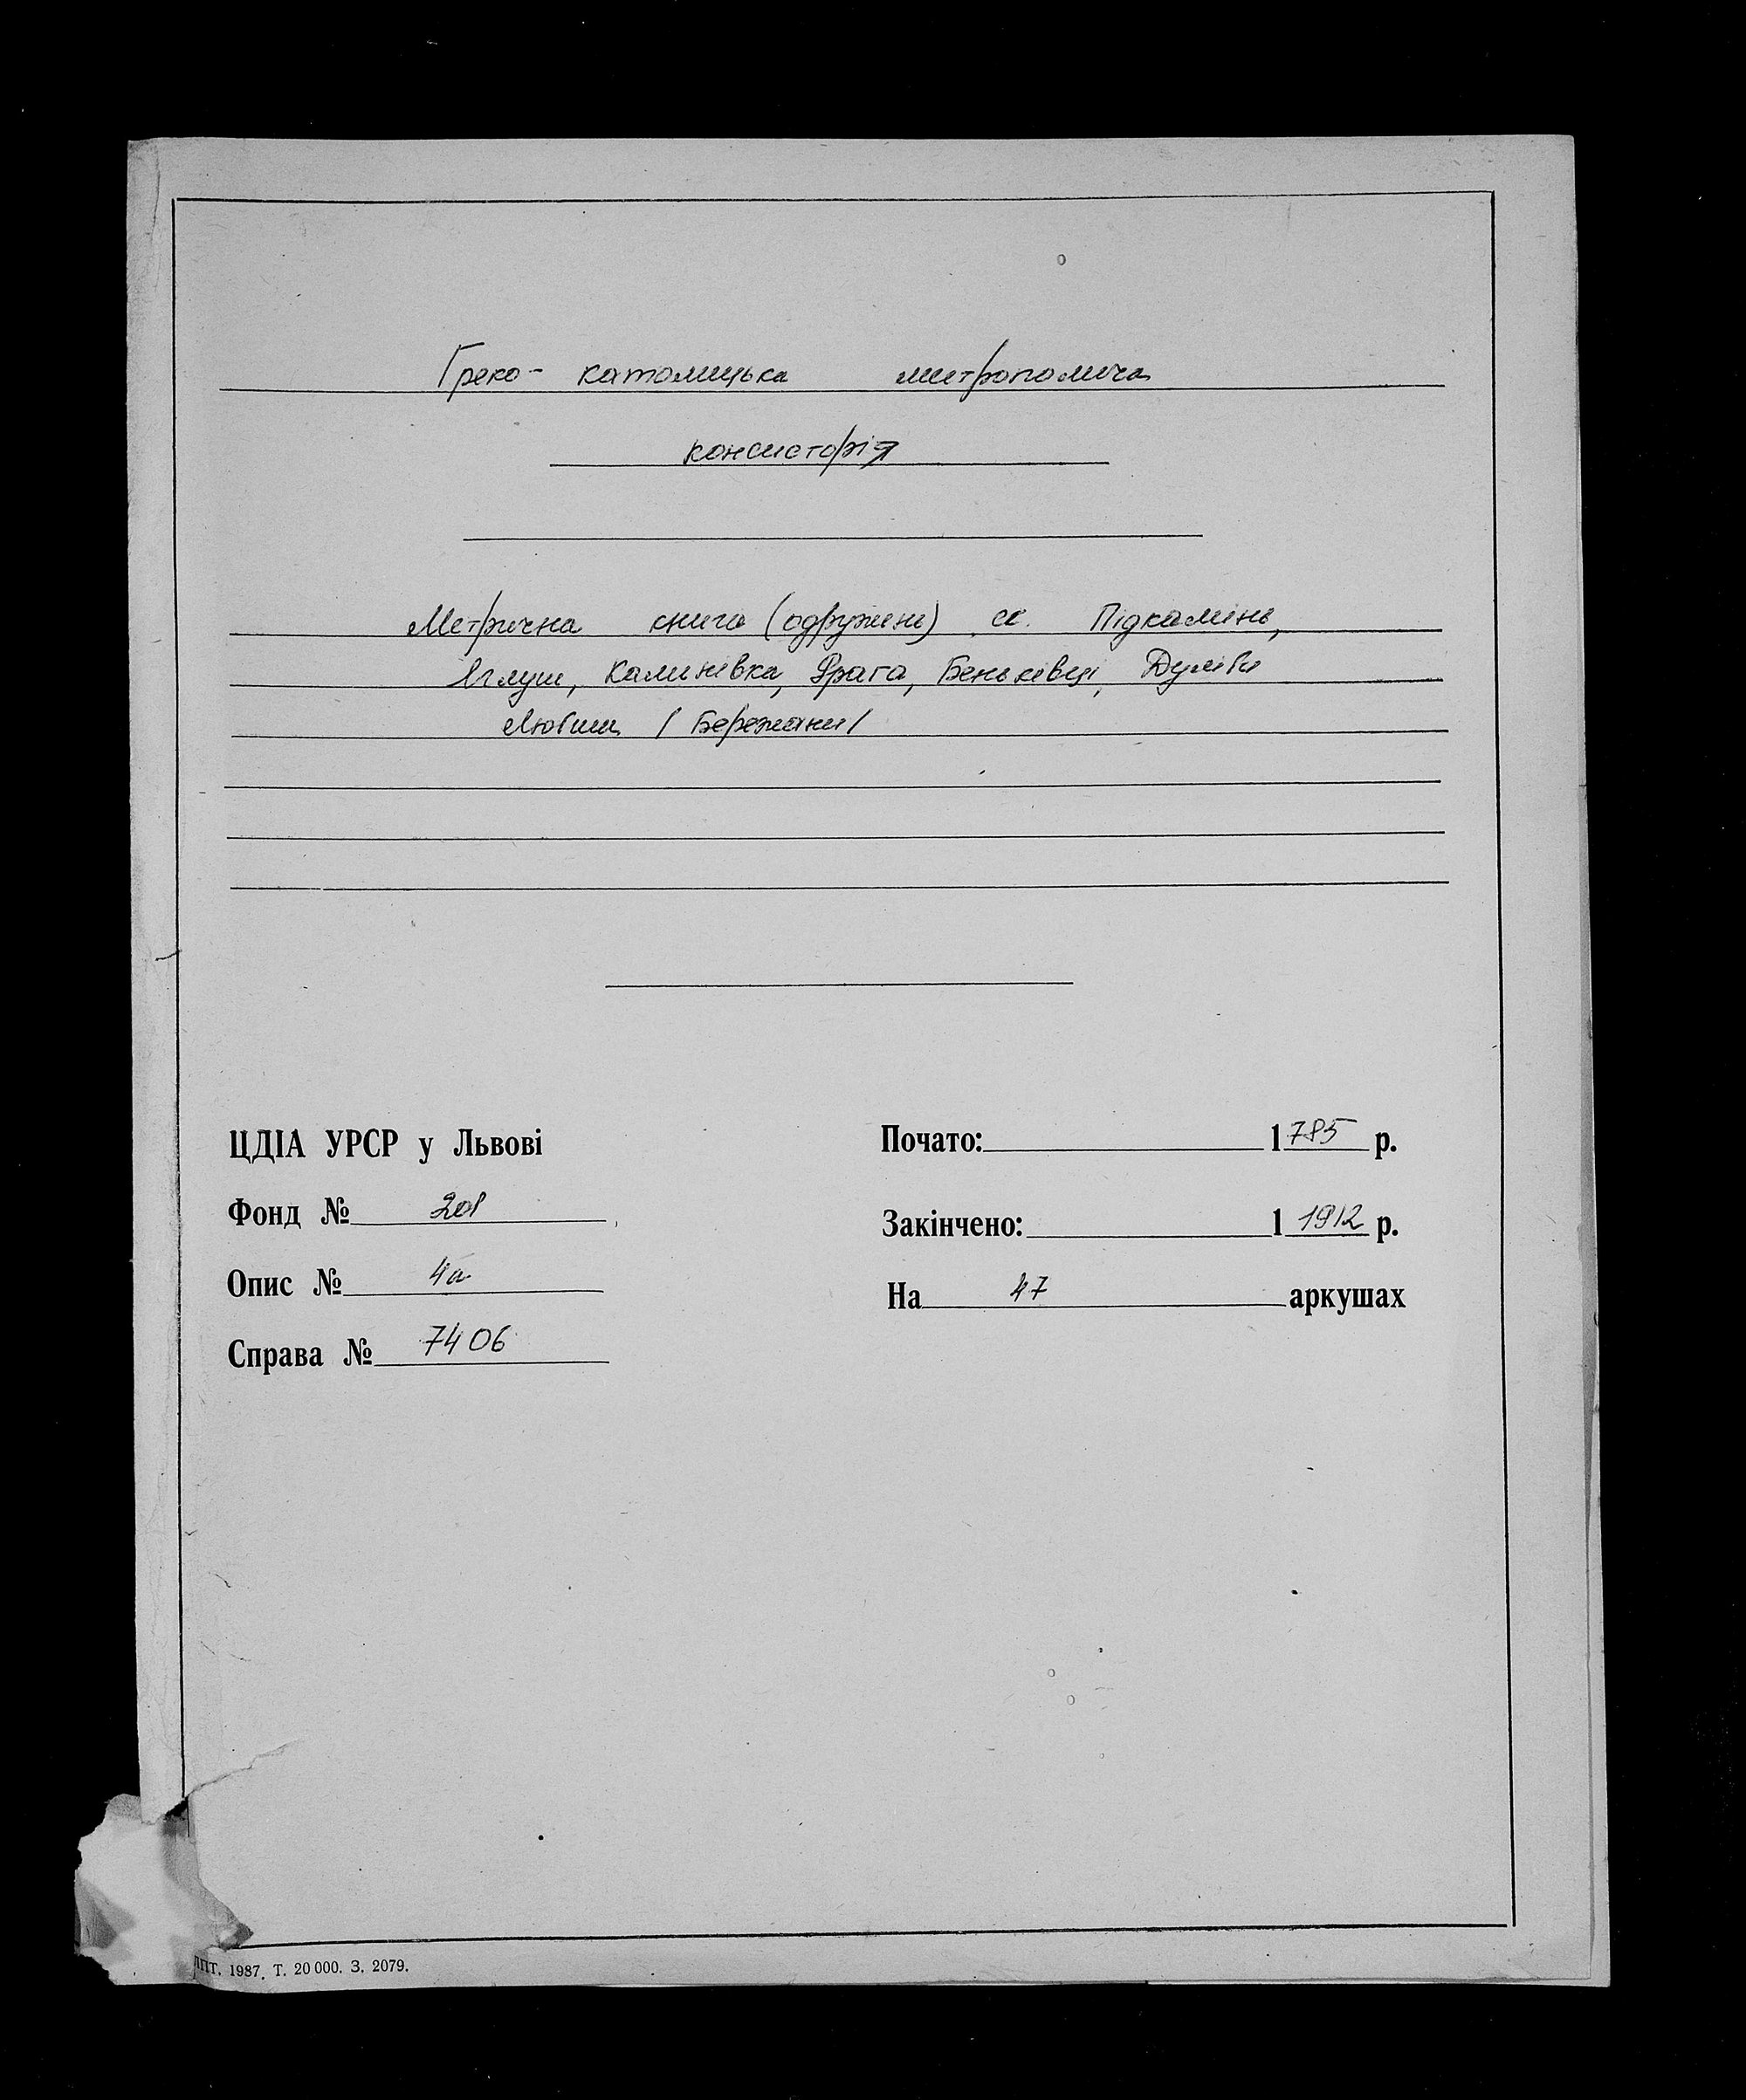 Греко- католицька митрополича
консисторія
Метрична книга (одружень) с. Підкамінь,
Яглуш, Калинівка, Фрага, Беньківці, Дуліби
Любша / Бережани /
ЦДІА УРСР у Львові
Фонд № 201
Опис № 4а
Справа № 7406
Почато: 1785 р.
Закінчено: 1 1912 р.
На 47 аркушах
1987. Т. 20 000. З. 2079.